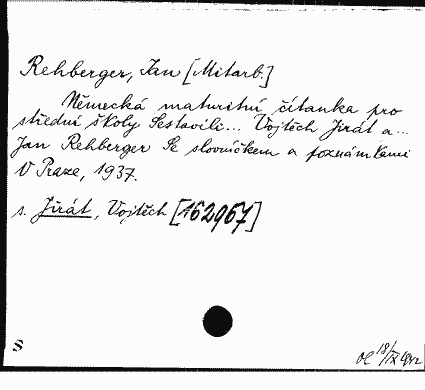 Rehberger, Jan [Mitarb.]
Německá maturitní čítanka pro
střední školy Sestavili... Vojtěch Jirát a...
Jan Rehberger Se slovníčkem a poznámkami
V Praze, 1937.
s. Jirát, Vojtěch [162967]
S
18/IX